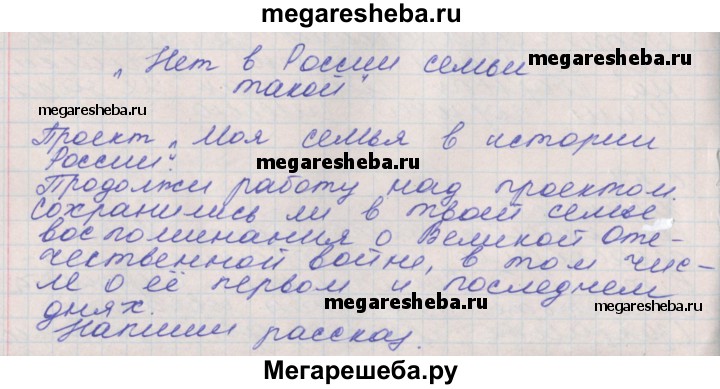 megaresheba.ru
„Нет в России семьи
megaresheba.ru
такой"
megaresheba.ru
Проект „Моя семья в истории
России".
megaresheba.ru
Продолжи работу над проектом.
Сохранились ли в твоей семье
воспоминания о Великой Оте-
чественной войне, в том чис-
ле о её первом и последнем
megaresheba.ru
megaresheba.ru
днях.
Напиши рассказ.
Мегарешеба.ру